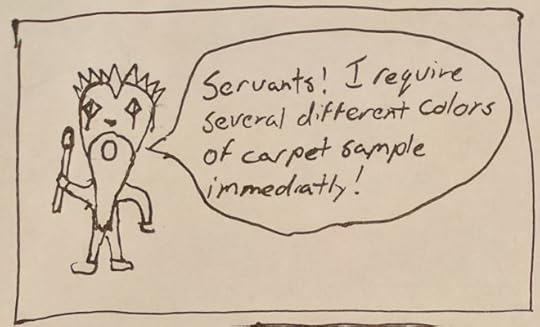 Servants! I require
several different colors
of carpet sample
immediatly!